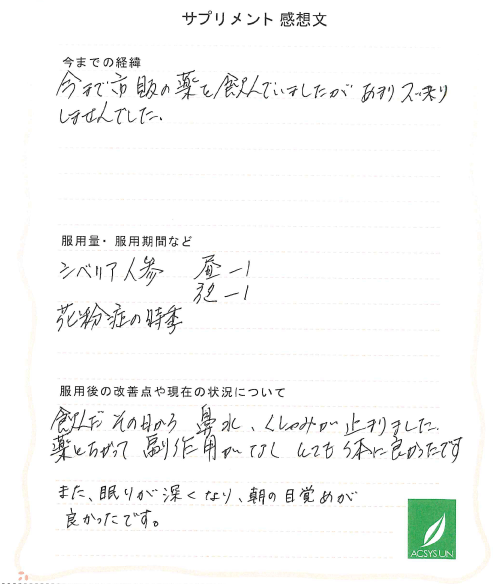 サプリメント 感想文
今までの経緯
今まで市販の薬を飲んでいましたが あまりスッキリ
しませんでした.
服用量・服用期間など
シベリア人参 昼ー1
夜ー1
花粉症の時季
服用後の改善点や現在の状況について
飲んだ その日から 鼻水、くしゃみが 止まりました.
薬とちがって 副作用がなく とても 体に良かったです
また、眠りが 深くなり、朝の目覚めが
良かったです。
ACSYSUN